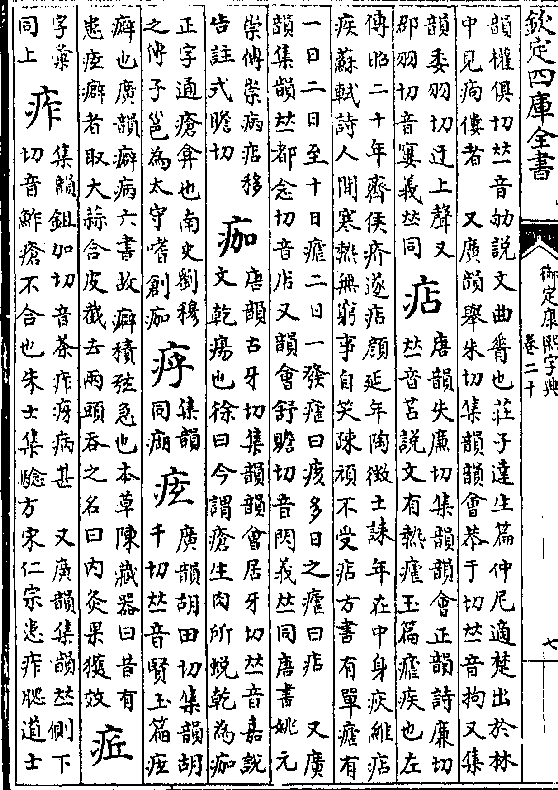 欽定四庫全書
御定康熙字典
卷二十
七
韻權俱切𠀤音劬說文曲脊也莊子達生篇仲尼適楚出於林
中見痀僂者 又廣韻舉朱切集韻韻會恭于切𠀤音拘又集
韻委羽切迂上聲又
郡羽切音寠義𠀤同
痁
唐韻失廉切集韻韻會正韻詩廉切
𠀤音苫說文有熱瘧玉篇瘧疾也左
傳昭二十年齊侯疥遂痁顏延年陶徵士誄年在中身疢維痁
疾蘇軾詩人間寒熱無窮事自笑疎頑不受痁方書有單瘧有
一日二日至十日瘧二日一發瘧曰痎多日之瘧曰痁 又廣
韻集韻𠀤都念切音店又韻會舒贍切音閃義𠀤同唐書姚元
崇傳崇病痁移
告註式贍切
痂
唐韻古牙切集韻韻會居牙切𠀤音嘉說
文乾瘍也徐曰今謂瘡生肉所蛻乾為痂
正字通瘡弇也南史劉穆
之傳子邕為太守嗜創痂
集韻
同
痃
廣韻胡田切集韻胡
千切𠀤音賢玉篇痃
癖也廣韻癖病六書故癖積弦急也本草陳藏器曰昔有
患痃癖者取大蒜合皮截去兩頭吞之名曰内灸果獲效
字彙
同上
痄
集韻鉏加切音茶痄疨病甚 又廣韻集韻𠀤側下
切音鮓瘡不合也朱士集驗方宋仁宗患痄腮道士